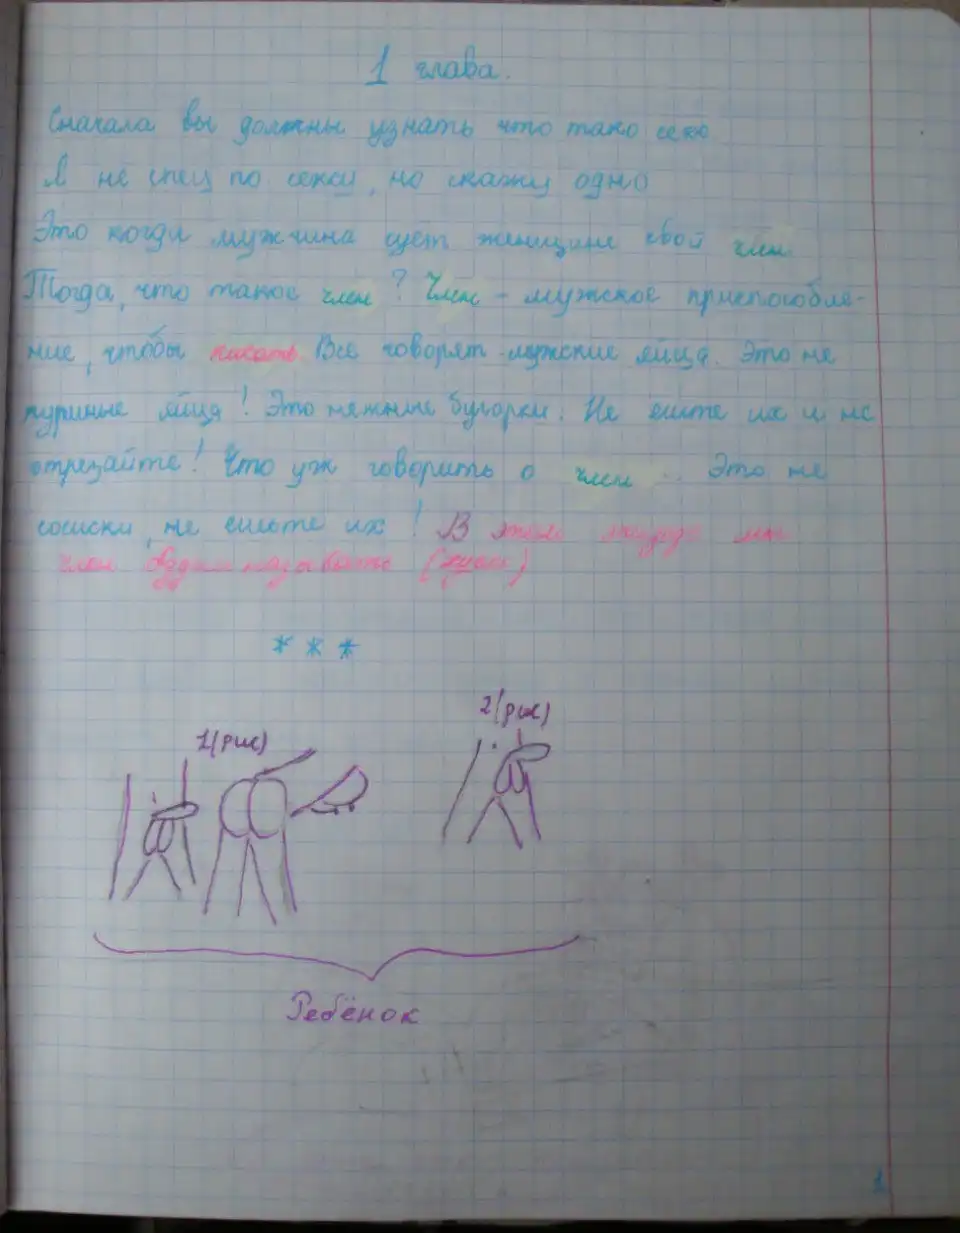 1 глава.
Сначала вы должны узнать что тако секс
Я не спец по секси, но скажу одно
Это когда мужчина сует женщине свой член
Тогда, что такое член? Член - мужское приспособле-
ние, чтобы какать. Все говорят мужские яйца. Это не
куриные яйца! Это нежные бугорки. Не ешьте их и не
отрезайте! Что уж говорить о член.. Это не
сосиски, не ешьте их! В этом мы
член будем называть
* * *
1(рис)
2(рис)
Ребёнок
1